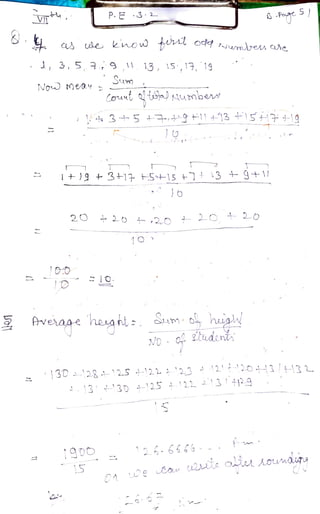 VIIth.
P.E - 3.2
B. Page 51
8. as we know first odd numbers are
1, 3, 5, 7, 9, 11, 13, 15, 17, 19
Now Mean = Sum
Count of total numbers
= 1 + 3 + 5 + 7 + 9 + 11 + 13 + 15 + 17 + 19
10
= 1 + 19 + 3 + 17 + 5 + 15 + 7 + 13 + 9 + 11
10
= 20 + 20 + 20 + 20 + 20
10
= 100
10
= 10
Average height = Sum of height
No. of students
= 130 + 128 + 125 + 122 + 123 + 121 + 120 + 131 + 132
+ 131 + 130 + 125 + 122 + 131 + 129
15
= 1900
15
= 126.6666...
or we can write after rounding
126.67